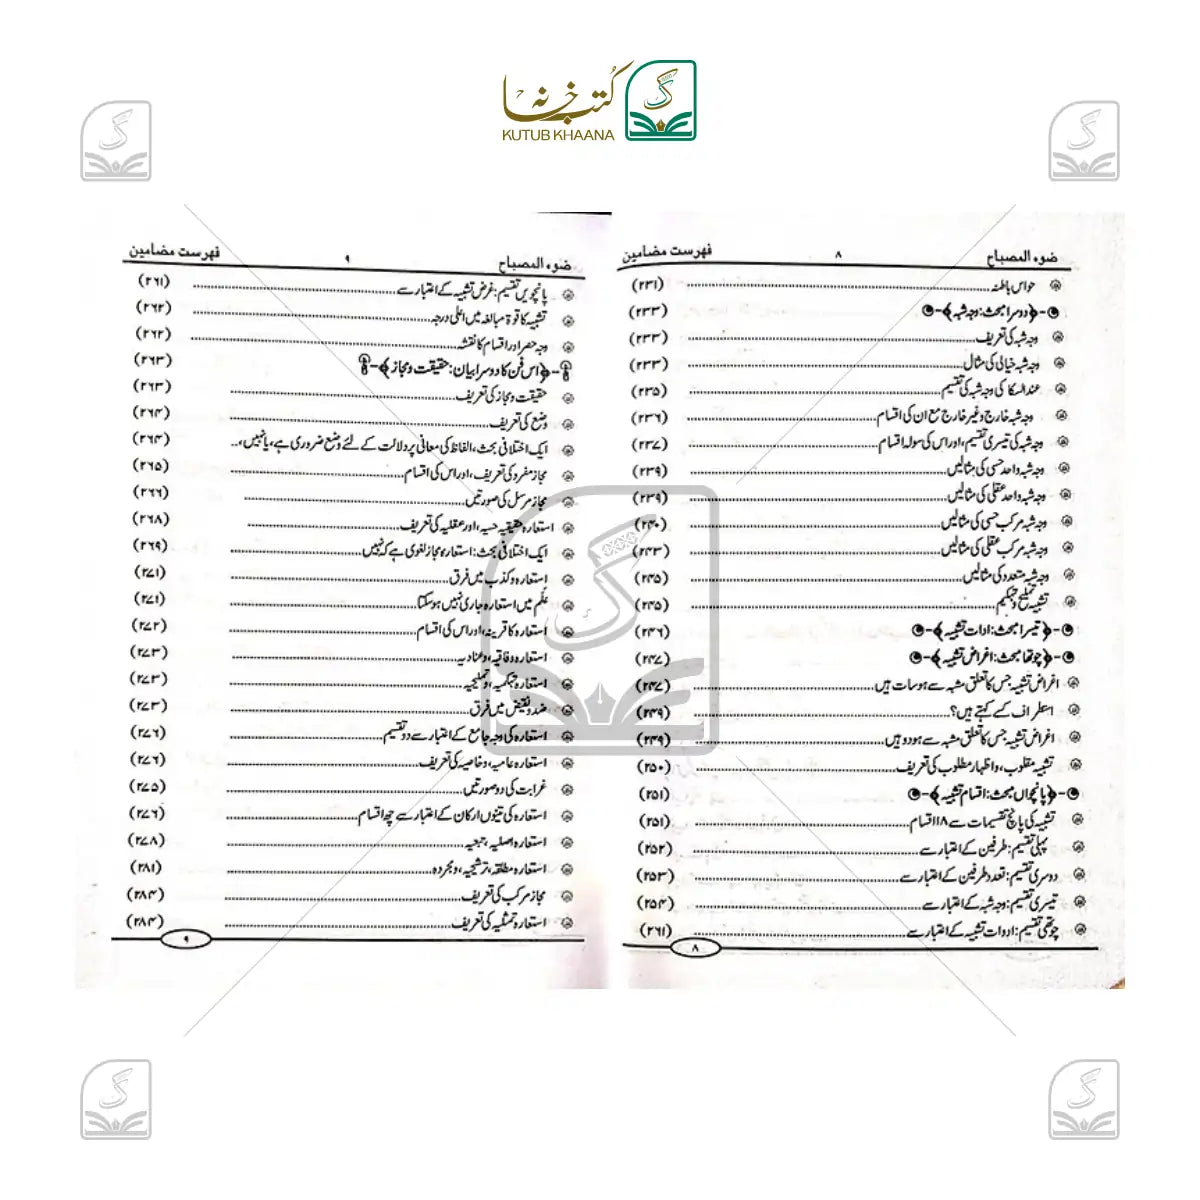 کتب خانہ
KUTUB KHAANA
ضوء المصباح ۸ فہرست مضامین
حواس باطنہ (۲۳۱)
﴿دوسرا مبحث: وجہ شبہ﴾ (۲۳۳)
وجہ شبہ کی تعریف (۲۳۳)
وجہ شبہ خیالی کی مثال (۲۳۳)
عند السکاکی وجہ شبہ کی تقسیم (۲۳۵)
وجہ شبہ خارج وغیر خارج مع ان کی اقسام (۲۳۶)
وجہ شبہ کی تیسری تقسیم، اور اس کی سولہ اقسام (۲۳۷)
وجہ شبہ واحد حسی کی مثالیں (۲۳۹)
وجہ شبہ واحد عقلی کی مثالیں (۲۳۹)
وجہ شبہ مرکب حسی کی مثالیں (۲۴۰)
وجہ شبہ مرکب عقلی کی مثالیں (۲۴۳)
وجہ شبہ متعدد کی مثالیں (۲۴۵)
تشبیہ تملیح وتہکیم (۲۴۵)
﴿تیسرا مبحث: ادات تشبیہ﴾ (۲۴۶)
﴿چوتھا مبحث: اغراض تشبیہ﴾ (۲۴۷)
اغراض تشبیہ جس کا تعلق مشبہ سے ہو سات ہیں (۲۴۷)
استطراف کسے کہتے ہیں؟ (۲۴۹)
اغراض تشبیہ جس کا تعلق مشبہ بہ سے ہو دو ہیں (۲۴۹)
تشبیہ مقلوب، واظہار مطلوب کی تعریف (۲۵۰)
﴿پانچواں مبحث: اقسام تشبیہ﴾ (۲۵۱)
تشبیہ کی پانچ تقسیمات سے ۱۱۸ اقسام (۲۵۱)
پہلی تقسیم: طرفین کے اعتبار سے (۲۵۲)
دوسری تقسیم: تعدد طرفین کے اعتبار سے (۲۵۳)
تیسری تقسیم: وجہ شبہ کے اعتبار سے (۲۵۴)
چوتھی تقسیم: ادوات تشبیہ کے اعتبار سے (۲۶۱)
۸
ضوء المصباح ۹ فہرست مضامین
پانچویں تقسیم: غرض تشبیہ کے اعتبار سے (۲۶۱)
تشبیہ کا قوۃ مبالغہ میں اعلی درجہ (۲۶۲)
وجہ حصر اور اقسام کا نقشہ (۲۶۲)
﴿اس فن کا دوسرا بیان: حقیقت ومجاز﴾ (۲۶۳)
حقیقت ومجاز کی تعریف (۲۶۳)
وضع کی تعریف (۲۶۴)
ایک اختلافی بحث، الفاظ کی معانی پر دلالت کے لئے وضع ضروری ہے، یا نہیں، (۲۶۴)
مجاز مفرد کی تعریف، اور اس کی اقسام (۲۶۵)
مجاز مرسل کی صورتیں (۲۶۶)
استعارہ حقیقیہ حسیہ، اور عقلیہ کی تعریف (۲۶۸)
ایک اختلافی بحث: استعارہ مجاز لغوی ہے کہ نہیں (۲۶۹)
استعارہ وکذب میں فرق (۲۷۱)
علَم میں استعارہ جاری نہیں ہوسکتا (۲۷۱)
استعارہ کا قرینہ، اور اس کی اقسام (۲۷۲)
استعارہ وفاقیہ، وعنادیہ (۲۷۳)
استعارہ تہکمیہ، وتملیحیہ (۲۷۳)
ضد ونقیض میں فرق (۲۷۳)
استعارہ کی وجہ جامع کے اعتبار سے دو تقسیم (۲۷۶)
استعارہ عامیہ، وخاصیہ کی تعریف (۲۷۶)
غرابت کی دو صورتیں (۲۷۵)
استعارہ کی تینوں ارکان کے اعتبار سے چھ اقسام (۲۷۶)
استعارہ اصلیہ، تبعیہ (۲۷۸)
استعارہ مطلقہ، ترشیحیہ، ومجردہ (۲۸۱)
مجاز مرکب کی تعریف (۲۸۴)
استعارہ تمثیلیہ کی تعریف (۲۸۴)
۹